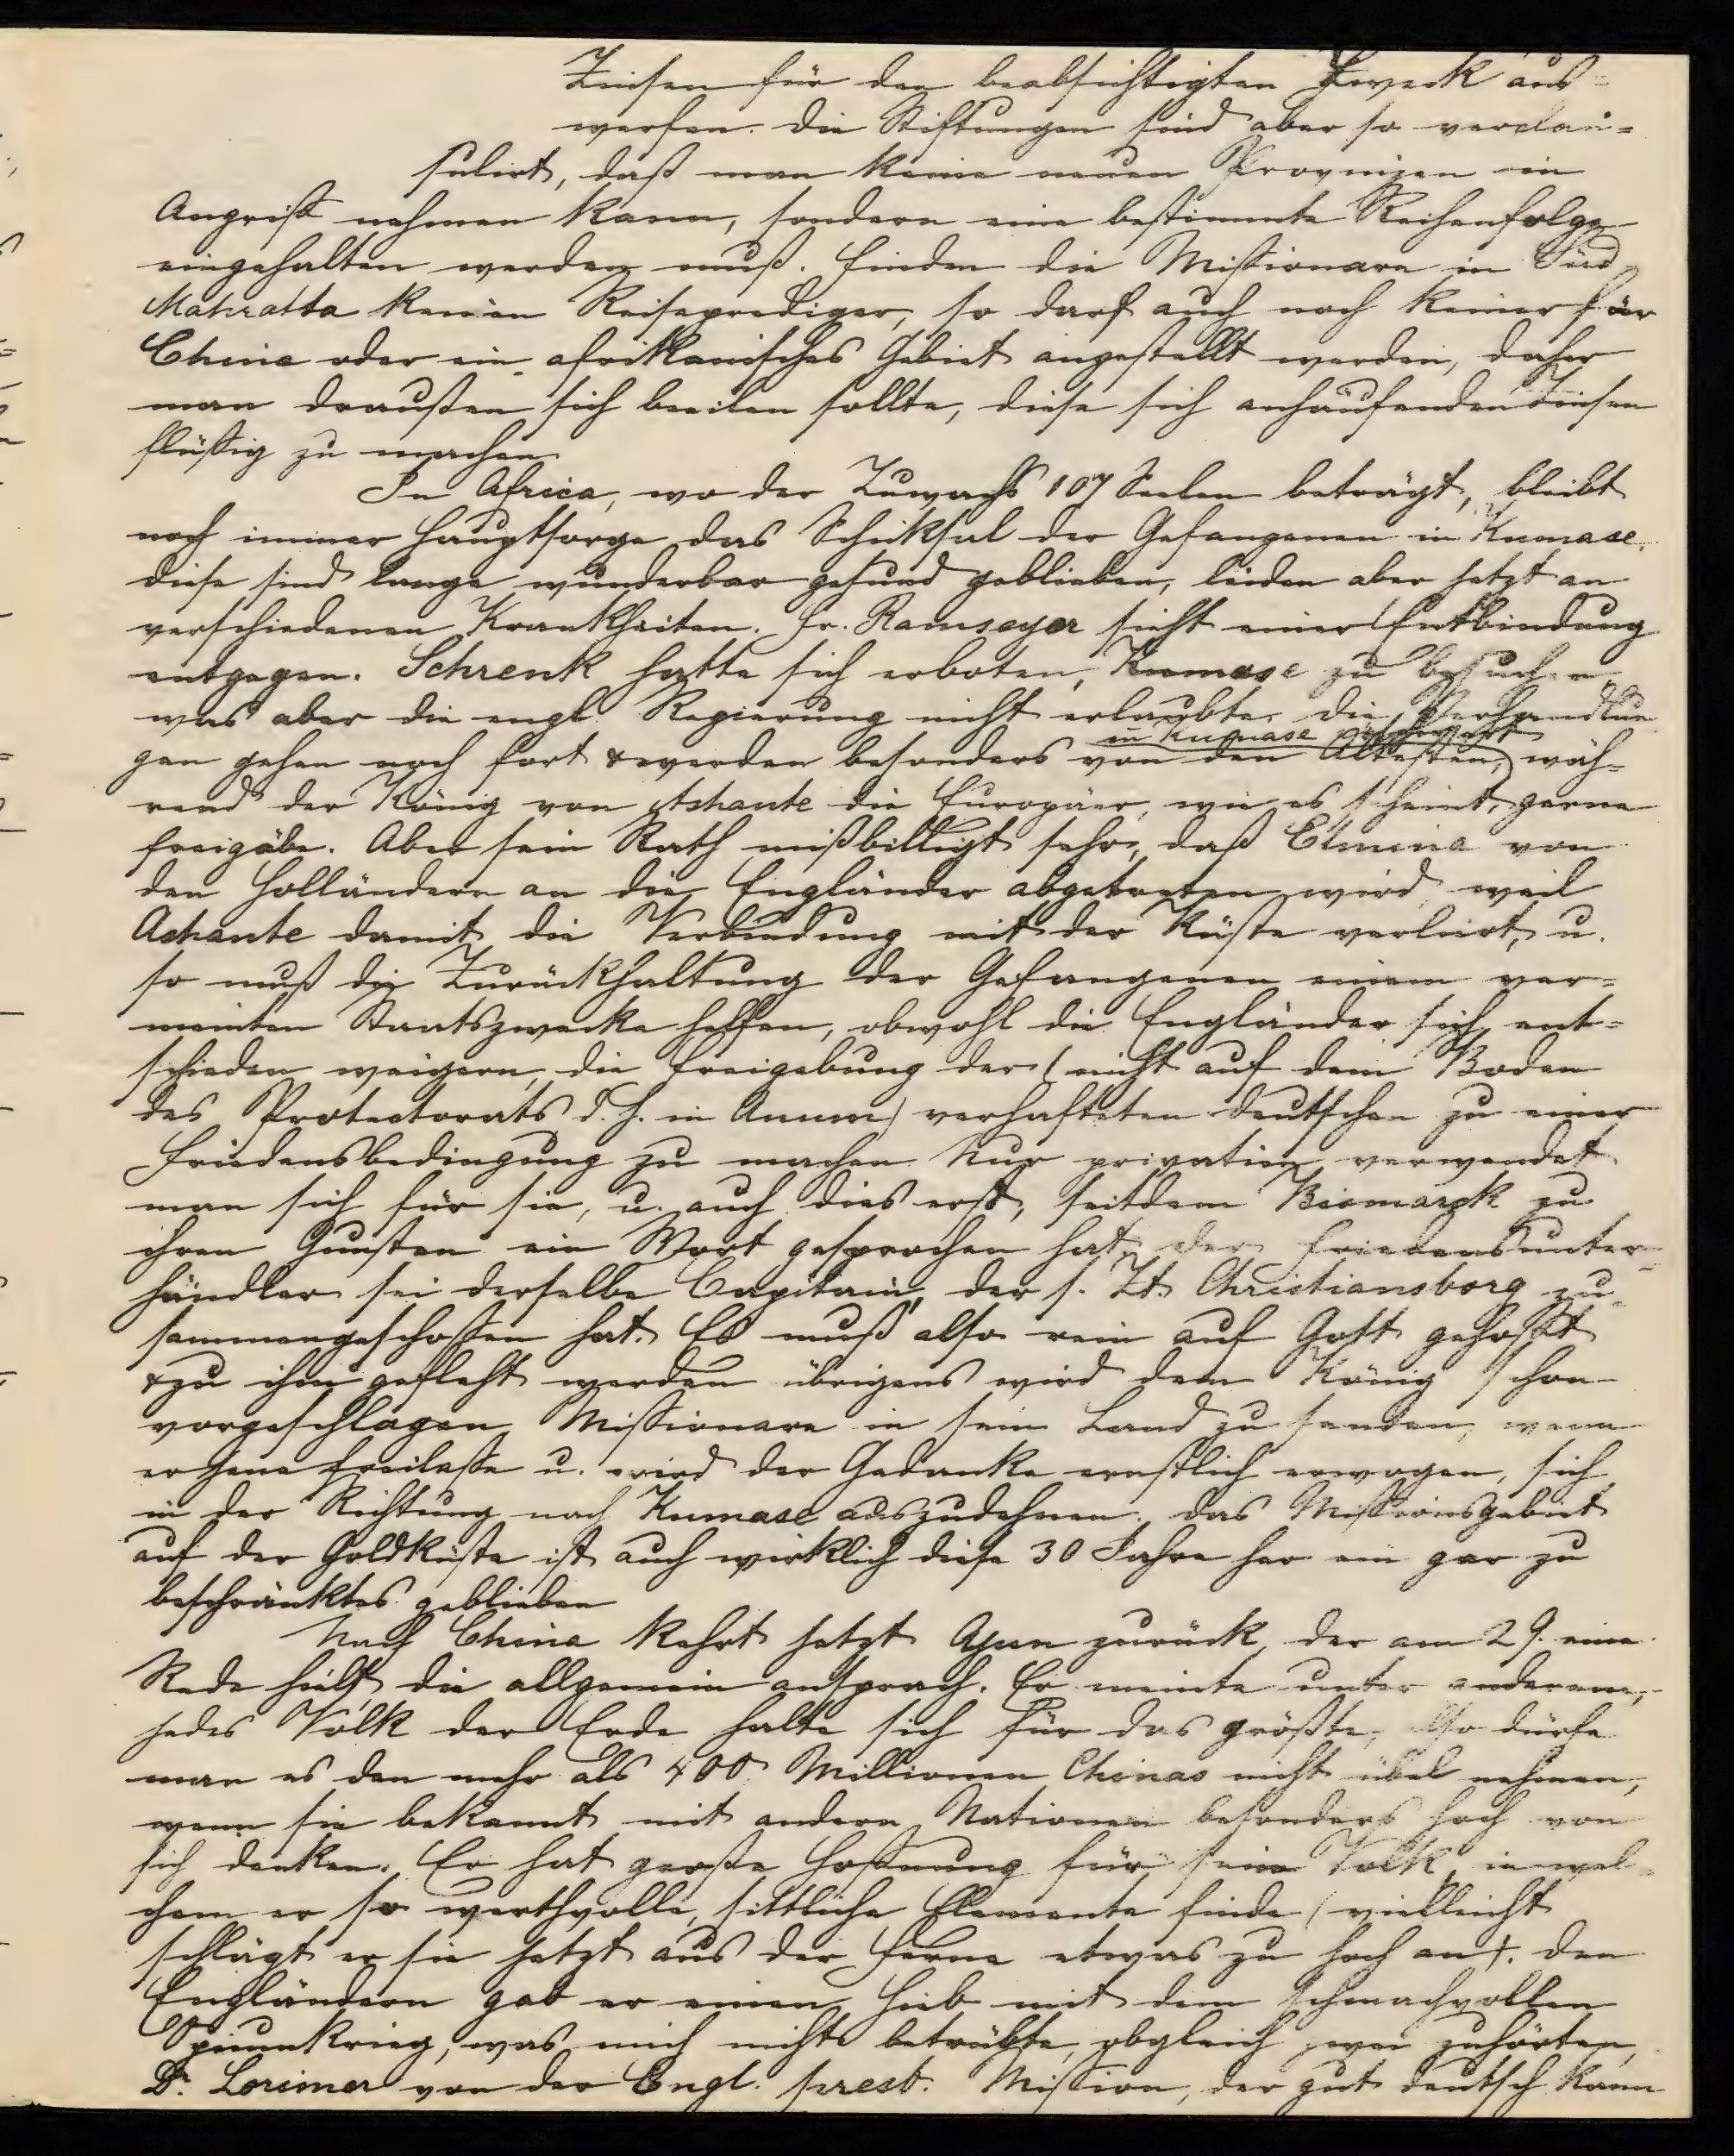 Zinsen für den beabsichtigten Zweck aus=
werfen. Die Stiftungen sind aber so verclau=
sulirt, daß man keine neuen Provinzen in
Angriff nehmen kann, sondern eine bestimmte Reihenfolge
eingehalten werden muß. Finden die Missionare in Süd
Mahratta keinen Reiseprediger, so darf auch noch keiner für
China oder ein afrikanisches Gebiet angestellt werden, daher
man draußen sich beeilen sollte, diese sich anhäufenden Zinsen
flüssig zu machen.
In Africa, wo der Zuwachs 107 Seelen beträgt, bleibt
noch immer Hauptsorge das Schiksal der Gefangenen in Kumase.
Diese sind lange wunderbar gesund geblieben, leiden aber jetzt an
verschiedenen Krankheiten. Fr. Ramseyer sieht einer Entbindung
entgegen. Schrenk hatte sich erboten, Kumase zu besuchen
was aber die engl. Regierung nicht erlaubte. Die Verhandlun
gen gehen noch fort & werden besonders von den Ältesten in Kumase erschwert, wäh=
rend der König von Ashante die Europäer, wie es scheint, gerne
freigäbe. Aber sein Rath mißbilligt sehr, daß Elmina von
den Holländern an die Engländer abgetreten wird, weil
Ashante damit die Verbindung mit der Küste verliert, u.
so muß die Zurückhaltung der Gefangenen einem ver=
meinten Staatszwecke helfen, obwohl die Engländer sich ent=
schieden weigern, die Freigebung der (nicht auf dem Boden
des Protectorats d. h. in Anum) verhafteten Deutschen zu einer
Friedensbedingung zu machen. Nur privatim verwendet
man sich für sie, u. auch dies erst, seitdem Bismarck zu
ihren Gunsten ein Wort gesprochen hat. Der Friedensunter=
händler sei derselbe Capitain, der s. Zt. Christiansborg zu=
sammengeschossen hat. Es muß also rein auf Gott gehofft
& zu ihm gefleht werden. Übrigens wird dem König schon
vorgeschlagen Missionare in sein Land zu senden, wenn
er Jene freilasse u. wird der Gedanke ernstlich erwogen, sich
in der Richtung nach Kumase auszudehnen. Das Missionsgebiet
auf der Goldküste ist auch wirklich diese 30 Jahre her ein gar zu
beschränktes geblieben
Nach China kehrt jetzt Ajun zurück, der am 29. eine
Rede hielt, die allgemein ansprach. Er meinte unter anderem,
jedes Volk der Erde halte sich für das größte, so dürfe
man es den mehr als 400 Millionen Chinas nicht übel nehmen,
wenn sie bekannt mit andern Nationen besonders hoch von
sich denken. Er hat große Hoffnung für sein Volk, in wel=
chem er so werthvolle, sittliche Elemente finde (vielleicht
schlägt er sie jetzt aus der Ferne etwas zu hoch an). Den
Engländern gab er einen Hieb mit dem schmachvollen
Opiumkrieg, was mich nicht betrübte, obgleich zwei zuhörten,
Dr. Lorimer von der Engl. presb. Mission, der gut deutsch kann